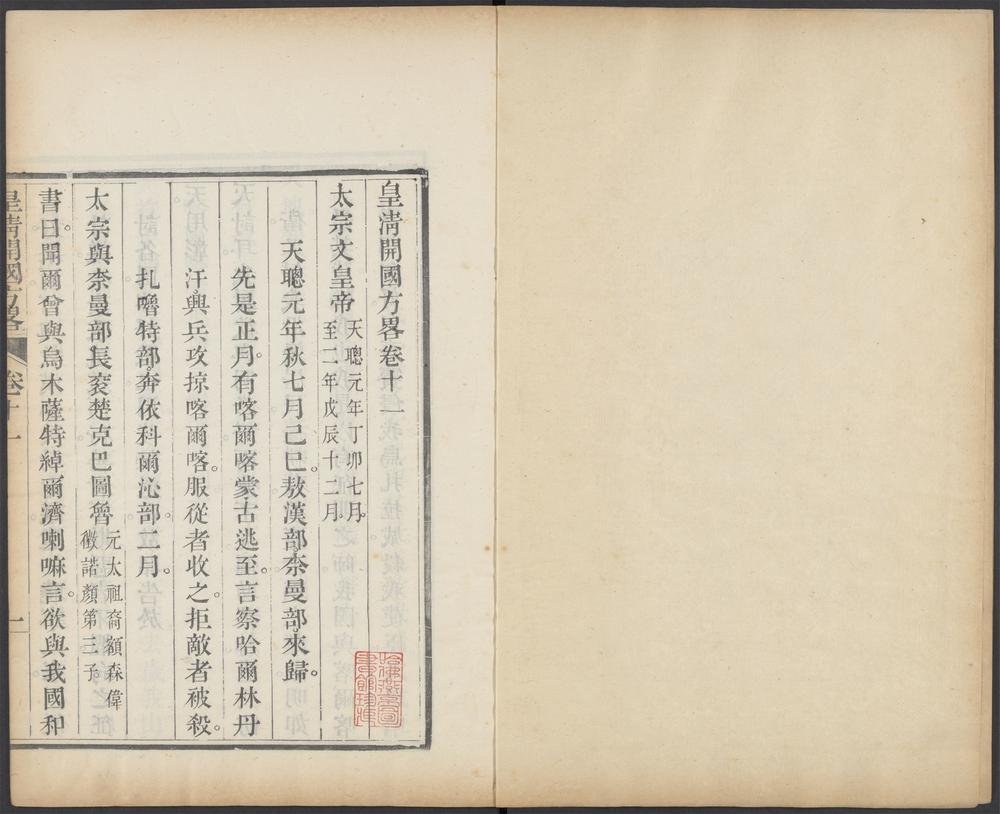 皇淸開國方畧卷十一
太宗文皇帝天聰元年丁卯七月
至二年戊辰十二月
天聰元年秋七月己巳。敖漢部。柰曼部來歸。
先是正月。有喀爾喀蒙古逃至。言察哈爾林丹
汗興兵攻掠喀爾喀。服從者收之。拒敵者被殺。
扎嚕特部奔依科爾沁部。二月。
太宗與柰曼部長衮楚克巴圖魯元太祖裔額森偉
徵諾顏第三子。
書曰。聞爾曾與烏木薩特綽爾濟喇嘛言。欲與我國和
皇淸開國方畧 卷十一 一